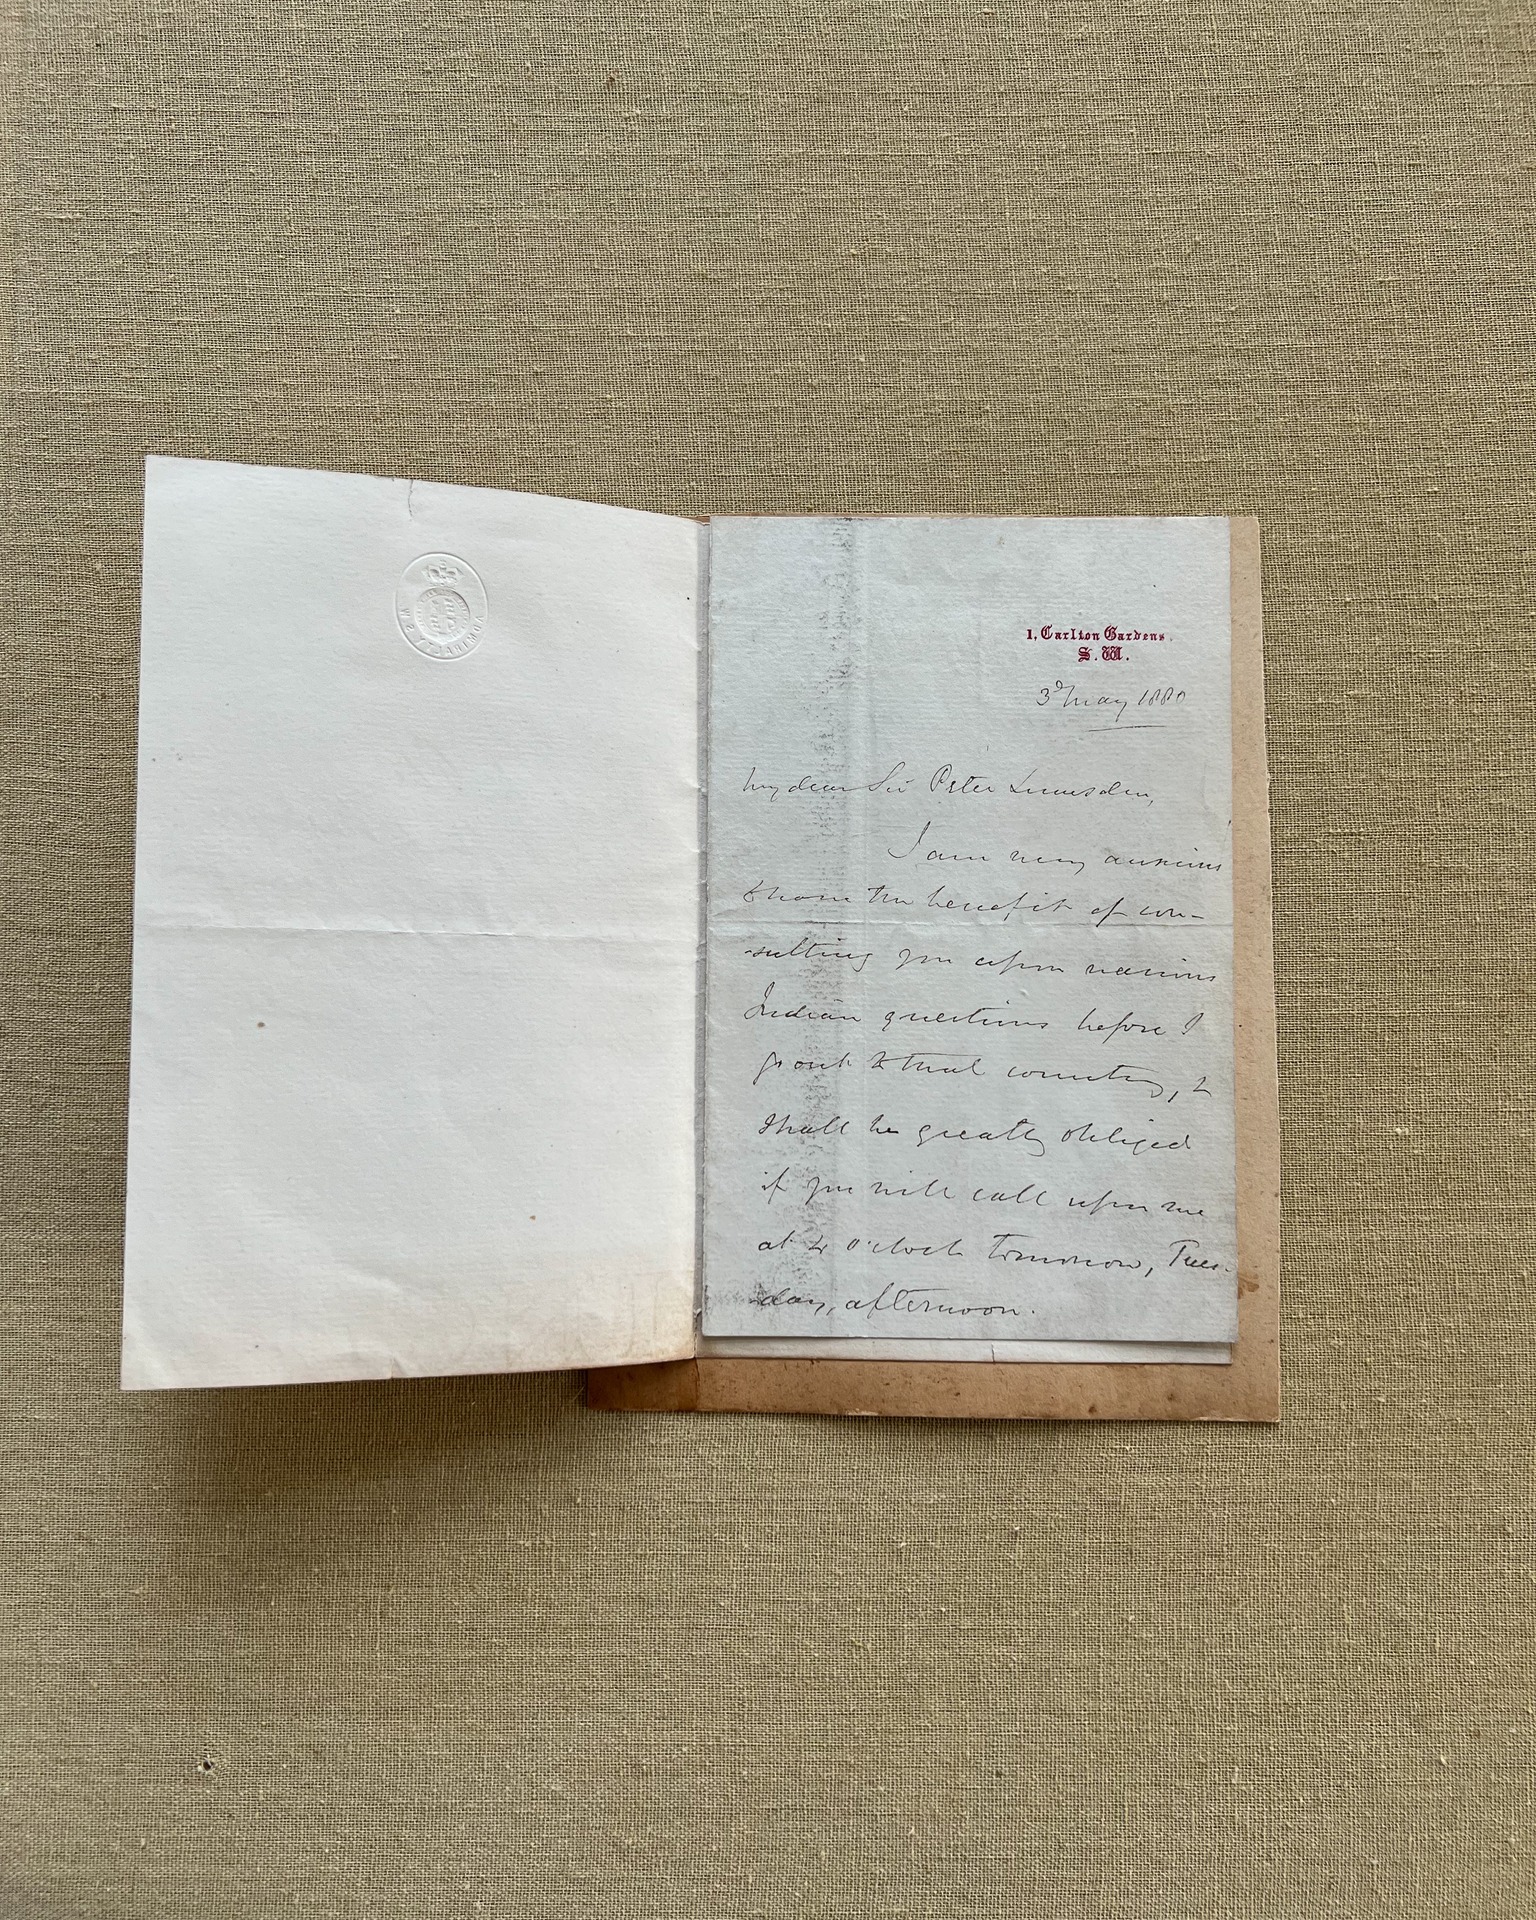 ADMIRALTY S W
1, Carlton Gardens.
S. W.
3d May 1880
My dear Sir Peter Lumsden,
I am very anxious
to have the benefit of con-
sulting you upon various
Indian questions before I
go out to that country, &
shall be greatly obliged
if you will call upon me
at 4 o'clock tomorrow, Tues-
day, afternoon.